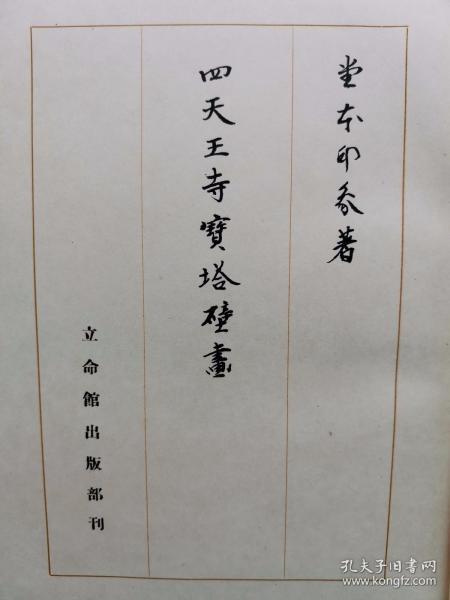 堂本印象著
四天王寺寶塔壁畫
立命館出版部刊
孔夫子旧书网
www.kongfz.com